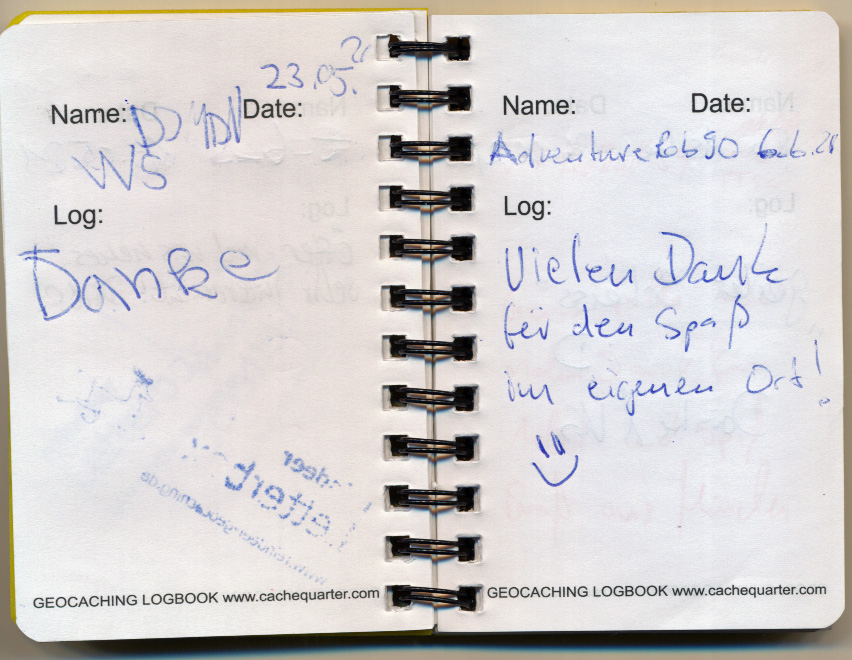 23.05.21
Name: Date:
WS
Log:
Danke
GEOCACHING LOGBOOK www.cachequarter.com
Name: Date:
AdventureRob90 6.6.21
Log:
Vielen Dank
für den Spaß
im eigenen Ort!
GEOCACHING LOGBOOK www.cachequarter.com